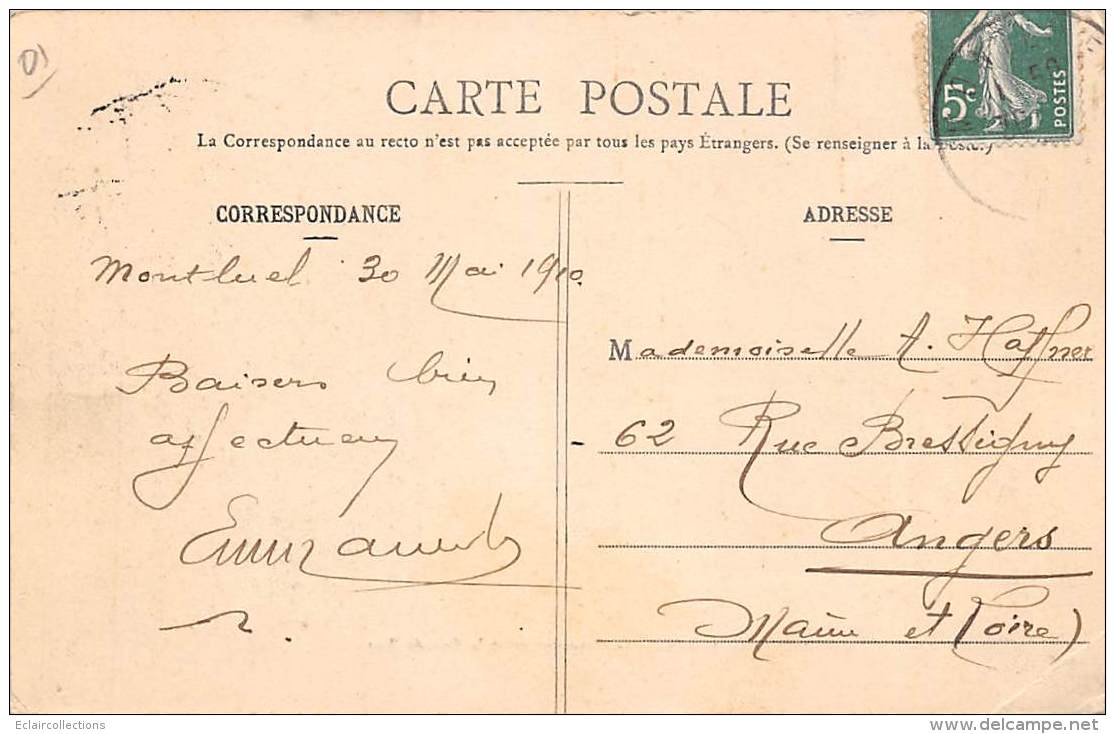 01
5c
POSTES
CARTE POSTALE
La Correspondance au recto n'est pas acceptée par tous les pays Étrangers. (Se renseigner à la poste.)
CORRESPONDANCE
Montluel 30 Mai 1910
Baisers bien
affectueux
ADRESSE
Mademoiselle A. Haffner
62 Rue Bressigny
Angers
Maine et Loire)
Eclaircollections
www.delcampe.net